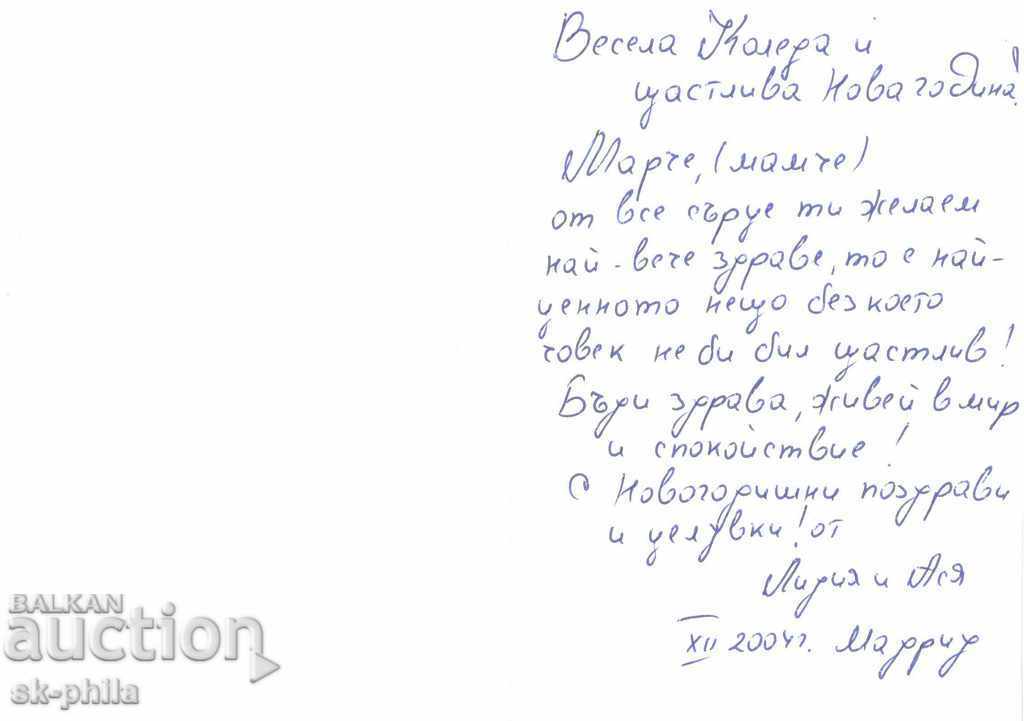 Весела Коледа и
щастлива Нова година!
Марче, (мамче)
от все сърце ти желаем
най-вече здраве, то е най-
ценното нещо без което
човек не би бил щастлив!
Бъди здрава, живей в мир
и спокойствие!
С Новогодишни поздрави
и целувки! от
Лидия и Ася
XII 2004 г. Мадрид
BALKAN
auction
sk-phila